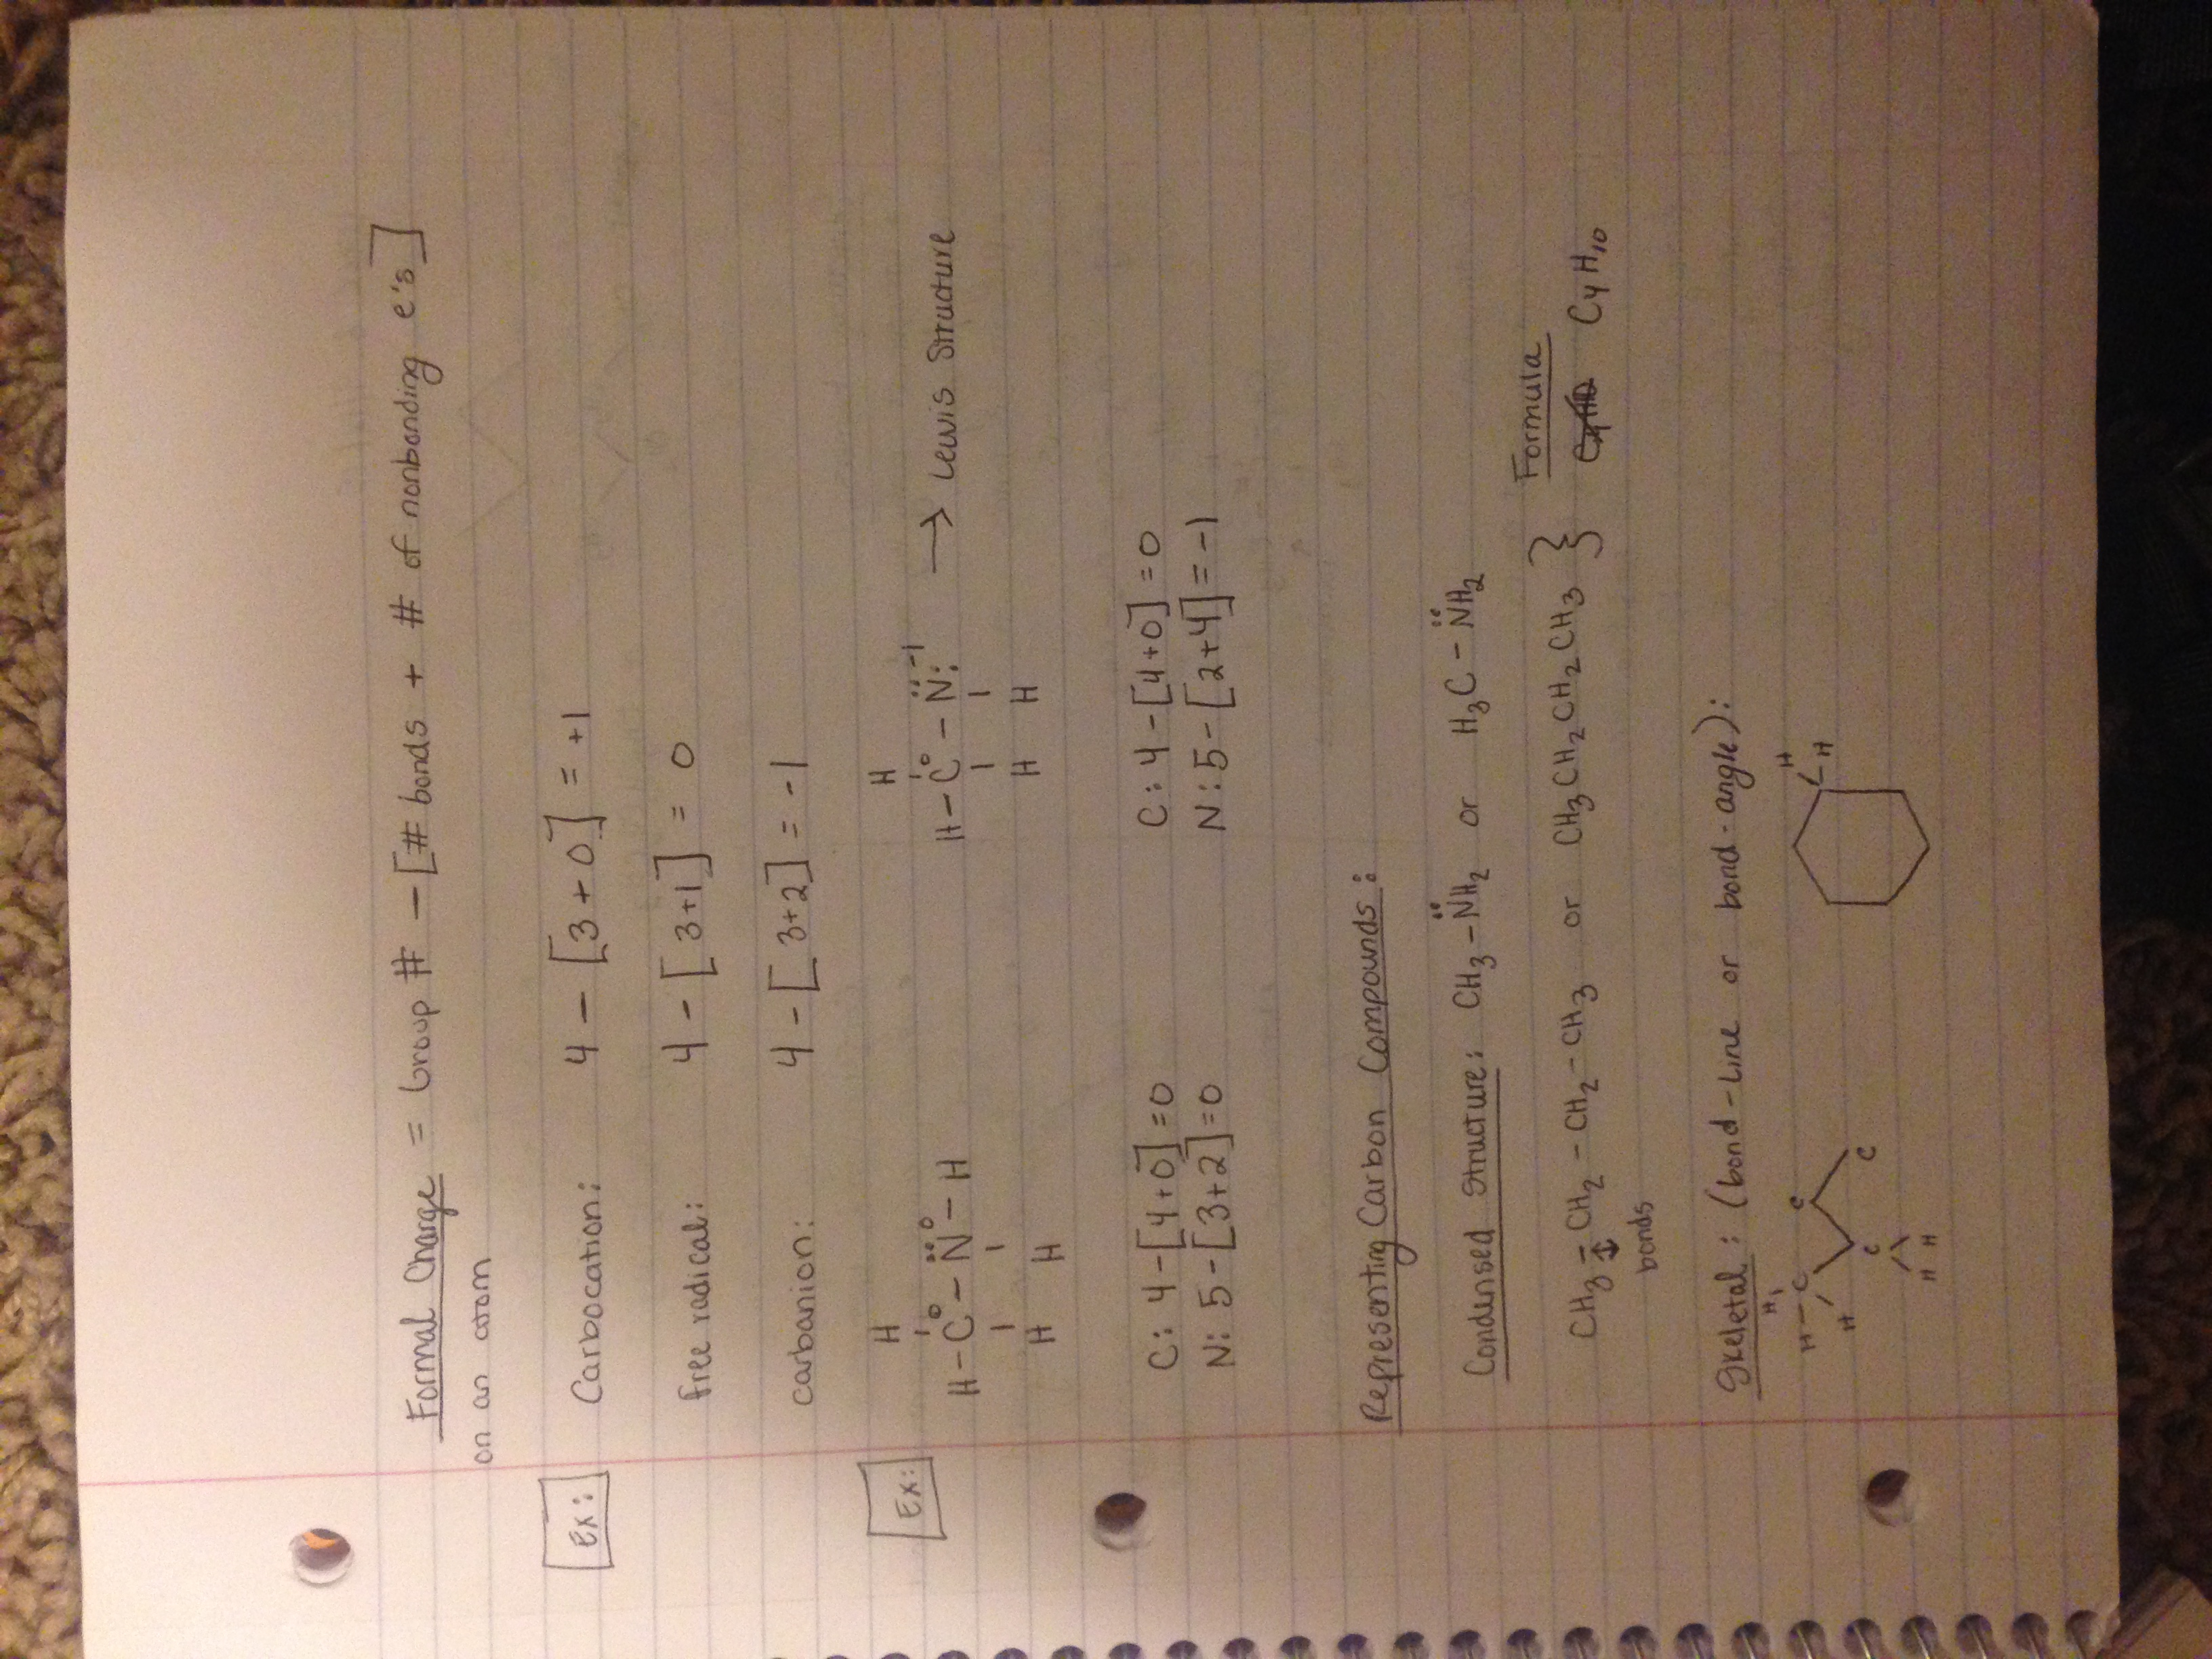 Formal Charge = Group # - [# bonds + # of nonbonding e's]
on an atom
Ex: Carbocation: 4 - [3+0] = +1
free radical: 4 - [3+1] = 0
carbanion: 4 - [3+2] = -1
Ex:
H H
H-C⁰-N̈⁰-H H-C⁰-N̈:⁻¹ → Lewis Structure
H H H H
C: 4-[4+0]=0 C: 4-[4+0]=0
N: 5-[3+2]=0 N: 5-[2+4]=-1
Representing Carbon Compounds:
Condensed Structure: CH₃-N̈H₂ or H₃C-N̈H₂
Formula
CH₃-CH₂-CH₂-CH₃ or CH₃CH₂CH₂CH₃ } C₄H₁₀
bonds
Skeletal: (bond-line or bond-angle):
H H
H-C C H
H C C
H H